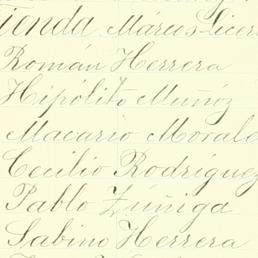 ienda Márcus Licer
Román Herrera
Hipólito Muñóz
Macario Morale
Cecilio Rodríguez
Pablo Zúñiga
Sabino Herrera